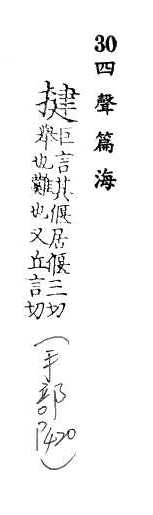 30四聲篇海
揵
巨言其偃居偃三切
舉也難也又丘言切
(手部P420)